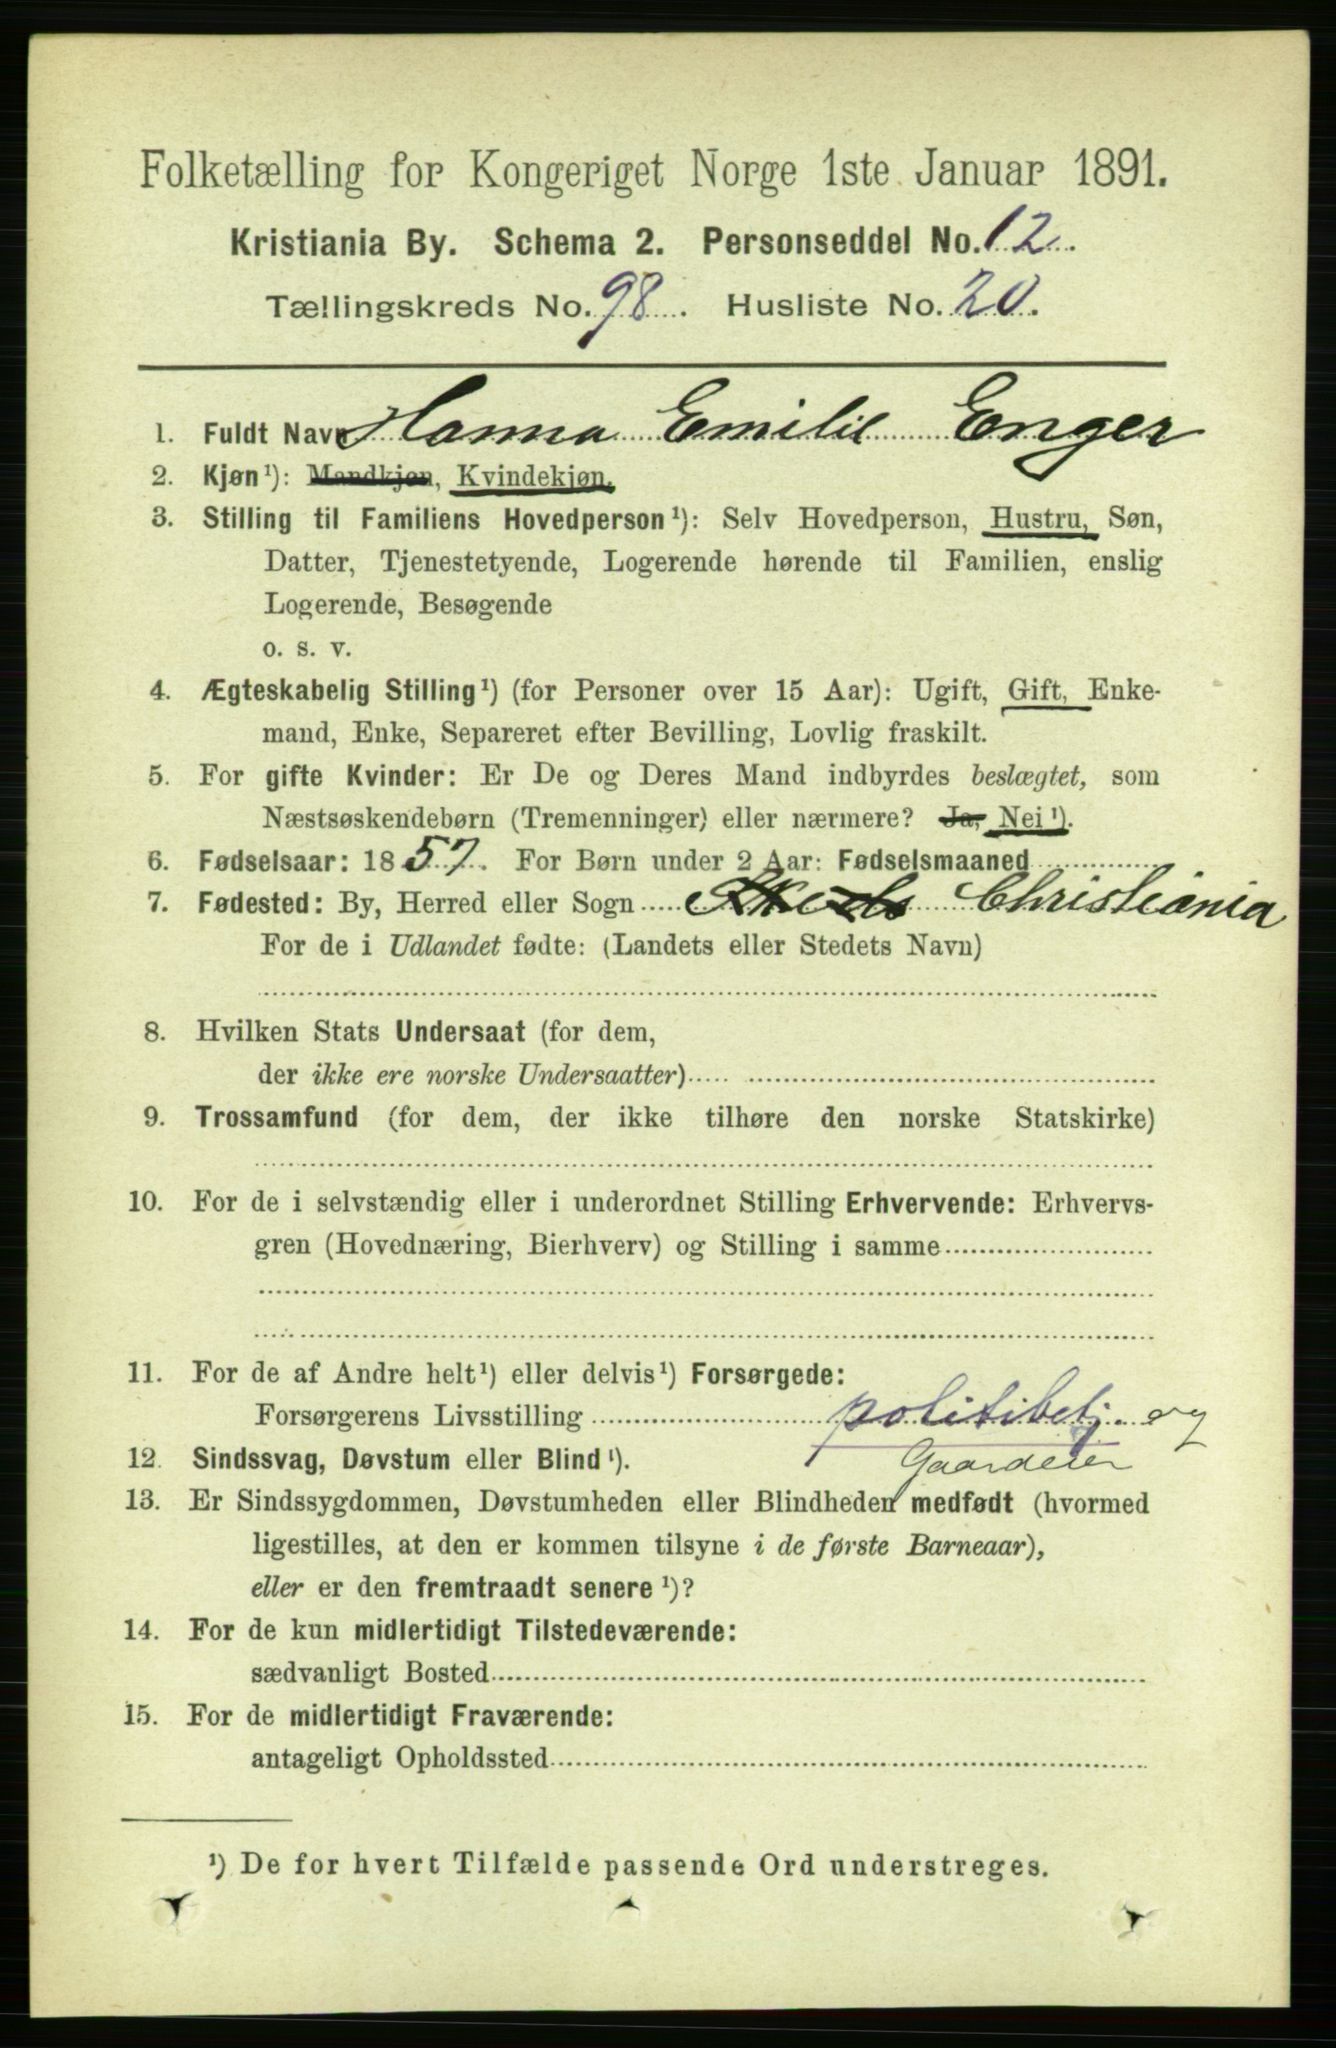 Folketælling for Kongeriget Norge 1ste Januar 1891.
Kristiania By. Schema 2. Personseddel No. 12.
Tællingskreds No. 98. Husliste No. 20.
1. Fuldt Navn Hanna Emilie Enger
2. Kjøn¹): Mandkjøn, Kvindekjøn.
3. Stilling til Familiens Hovedperson¹): Selv Hovedperson, Hustru, Søn,
Datter, Tjenestetyende, Logerende hørende til Familien, enslig
Logerende, Besøgende
o. s. v.
4. Ægteskabelig Stilling¹) (for Personer over 15 Aar): Ugift, Gift, Enke-
mand, Enke, Separeret efter Bevilling, Lovlig fraskilt.
5. For gifte Kvinder: Er De og Deres Mand indbyrdes beslægtet, som
Næstsøskendebørn (Tremenninger) eller nærmere? Ja, Nei¹).
6. Fødselsaar: 1857. For Børn under 2 Aar: Fødselsmaaned
7. Fødested: By, Herred eller Sogn Christiania
For de i Udlandet fødte: (Landets eller Stedets Navn)
8. Hvilken Stats Undersaat (for dem,
der ikke ere norske Undersaatter)
9. Trossamfund (for dem, der ikke tilhøre den norske Statskirke)
10. For de i selvstændig eller i underordnet Stilling Erhvervende: Erhvervs-
gren (Hovednæring, Bierhverv) og Stilling i samme
11. For de af Andre helt¹) eller delvis¹) Forsørgede:
Forsørgerens Livsstilling politibetj. og
Gaardeier
12. Sindssvag, Døvstum eller Blind¹).
13. Er Sindssygdommen, Døvstumheden eller Blindheden medfødt (hvormed
ligestilles, at den er kommen tilsyne i de første Barneaar),
eller er den fremtraadt senere¹)?
14. For de kun midlertidigt Tilstedeværende:
sædvanligt Bosted
15. For de midlertidigt Fraværende:
antageligt Opholdssted
¹) De for hvert Tilfælde passende Ord understreges.